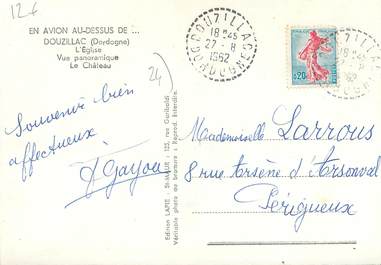 12€
EN AVION AU-DESSUS DE ...
DOUZILLAC (Dordogne)
L'Église
Vue panoramique
Le Château
24
DOUZILLAC
18 H 45
27 - 8
1962
DORDOGNE
0,20
Souvenir bien
affectueux
J Gayou
Edition LAPIE - St-MAUR - 123, rue Garibaldi
Véritable photo au bromure - Reprod. Interdite.
Mademoiselle Larrous
8 rue Arsène d'Arsonval
Périgueux